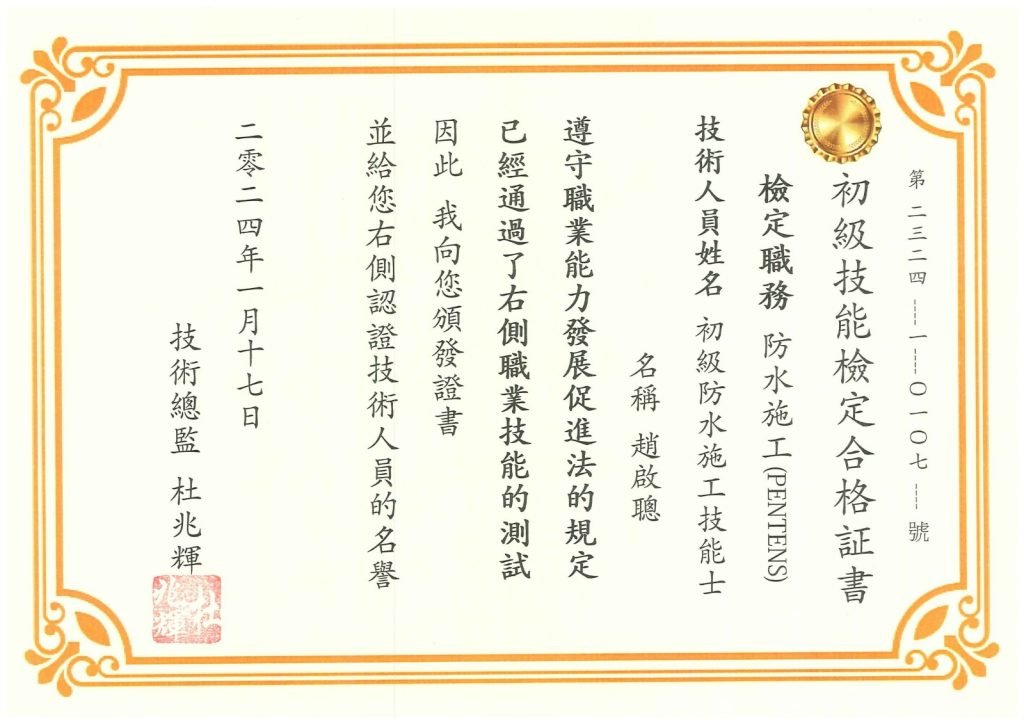 第 二三二四 ---- 一 ---- ０一０七 ---- 號
初級技能檢定合格証書
檢定職務 防水施工(PENTENS)
技術人員姓名 初級防水施工技能士
名稱 趙啟聰
遵守職業能力發展促進法的規定
已經通過了右側職業技能的測試
因此 我向您頒發證書
並給您右側認證技術人員的名譽
二零二四年一月十七日
技術總監 杜兆輝
杜兆輝